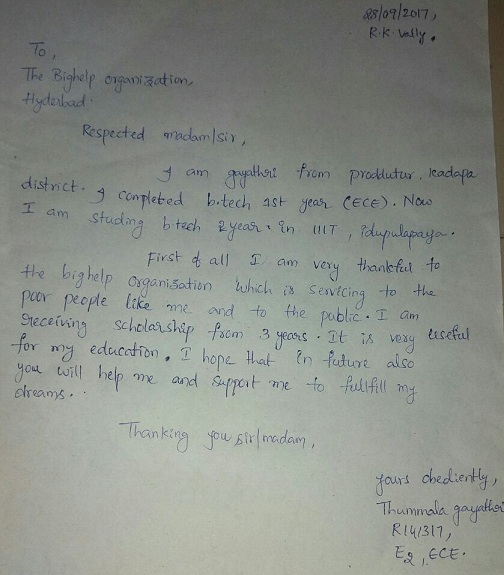 28/09/2017,
R.K. Vally.
To,
The Bighelp organization,
Hyderbad.
Respected madam/sir,
I am gayathri from proddutur, kadapa
district. I completed b.tech 1st year (ECE). Now
I am studing b.tech 2year in IIIT, idupulapaya.
First of all I am very thankful to
the bighelp organisation which is servicing to the
poor people like me and to the public. I am
receiving scholarship from 3 years. It is very useful
for my education. I hope that in future also
you will help me and support me to fullfill my
dreams.
Thanking you sir/madam,
yours obediently,
Thummala gayathri
R141317,
E2, ECE.